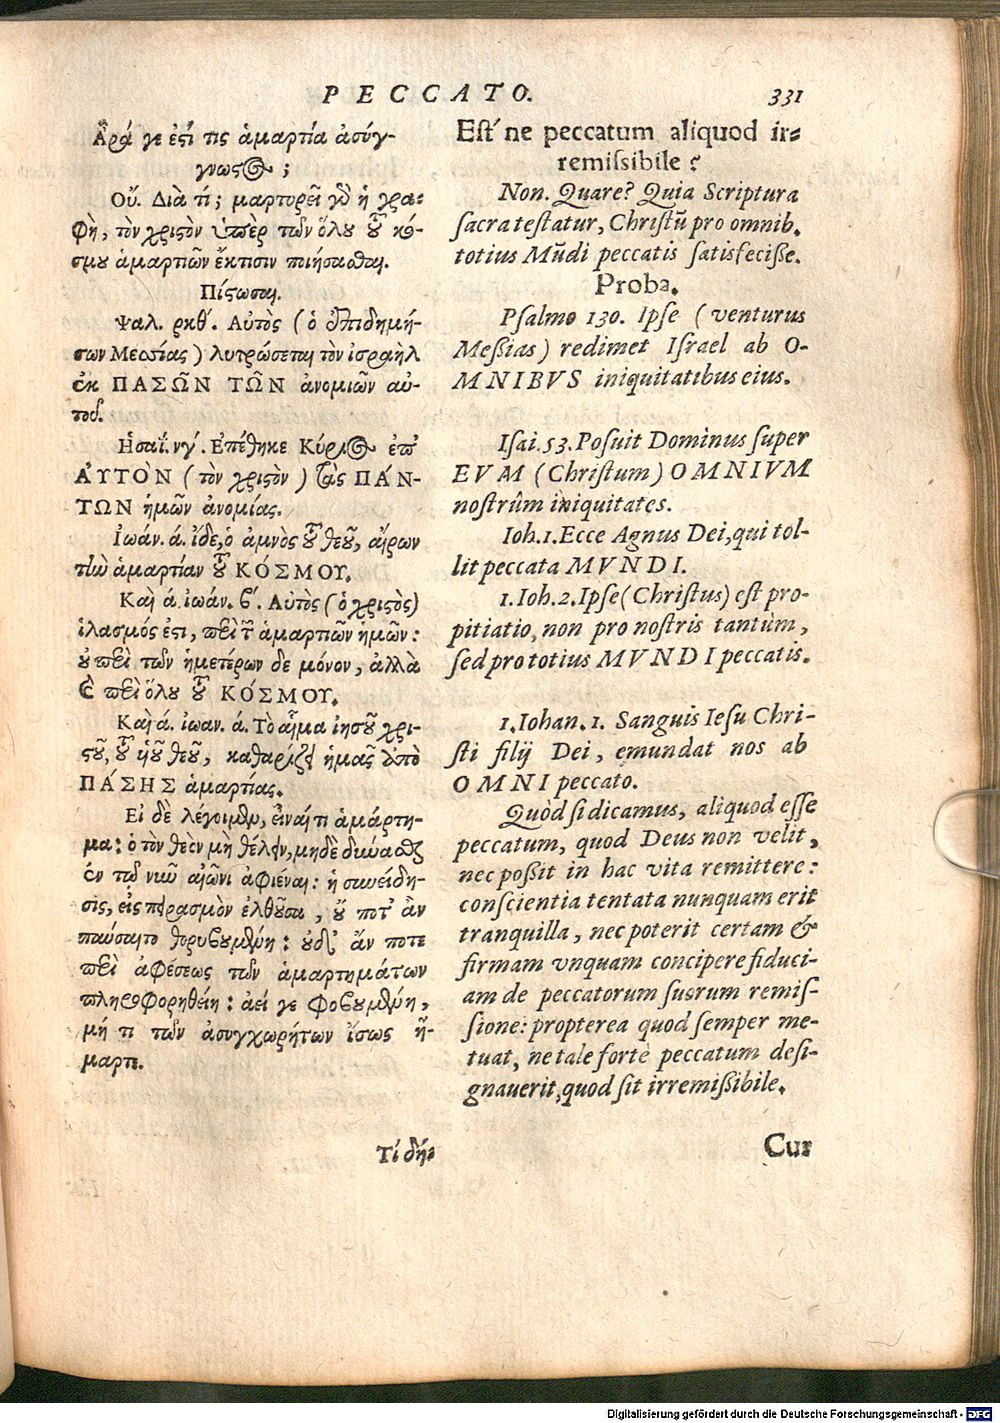 PECCATO. 331
Ἆρά γε ἐστί τις ἁμαρτία ἀσύγ-
γνωστος;
Οὔ. Διὰ τί; μαρτυρεῖ γὰρ ἡ γρα-
φὴ, τὸν χριστὸν ὑπὲρ τῶν ὅλου τοῦ κό-
σμου ἁμαρτιῶν ἔκτισιν ποιήσασθαι.
Πίστωσαι.
Ψαλ. ρκθ΄. Αὐτὸς (ὁ ἐπιδημή-
σων Μεσσίας) λυτρώσεται τὸν ἰσραὴλ
ἐκ ΠΑΣΩ͂Ν ΤΩ͂Ν ἀνομιῶν αὐ-
τοῦ.
Ἡσαΐ. νγ΄. Επέθηκε Κύριος ἐπ'
ἈΥΤῸΝ (τὸν χριστὸν) τὰς ΠΆΝ-
ΤΩΝ ἡμῶν ἀνομίας.
Ἰωάν. ά. ἴδε, ὁ ἀμνὸς τοῦ θεοῦ, αἴρων
τὴν ἁμαρτίαν τοῦ ΚΌΣΜΟΥ.
Καὶ ά. ἰωάν. β΄. Αὐτὸς (ὁ χριστὸς)
ἱλασμός ἐστι, περὶ τῶν ἁμαρτιῶν ἡμῶν:
οὐ περὶ τῶν ἡμετέρων δε μόνον, ἀλλὰ
καὶ περὶ ὅλου τοῦ ΚΌΣΜΟΥ.
Καὶ ά. ἰωαν. ά. Τὸ αἷμα ἰησοῦ χρι-
στοῦ, τοῦ ὑιοῦ θεοῦ, καθαρίζει ἡμᾶς ἀπὸ
ΠΆΣΗΣ ἁμαρτίας.
Εἰ δὲ λέγοιμεν, εἶναί τι ἁμάρτη-
μα: ὁ τὸν θεὸν μὴ θέλειν, μηδὲ δύνασθαι
ἐν τῷ νῦν αἰῶνι ἀφιέναι: ἡ συνείδη-
σις, εἰς πειρασμὸν ἐλθοῦσα, οὔ ποτ' ἂν
παύσαιτο θορυβουμένη: οὐδ' ἄν ποτε
περὶ ἀφέσεως τῶν ἁμαρτημάτων
πληροφορηθείη: ἀεί γε φοβουμένη,
μή τι τῶν ἀσυγχωρήτων ἴσως ἥ-
μαρτε.
Τί δή-
Est' ne peccatum aliquod ir-
remissibile?
Non. Quare? Quia Scriptura
sacra testatur, Christū pro omnib.
totius Mūdi peccatis satisfecisse.
Proba.
Psalmo 130. Ipse (venturus
Messias) redimet Israel ab O-
MNIBVS iniquitatibus eius.
Isai. 53. Posuit Dominus super
EVM (Christum) OMNIVM
nostrûm iniquitates.
Ioh. 1. Ecce Agnus Dei, qui tol-
lit peccata MVNDI.
1. Ioh. 2. Ipse (Christus) est pro-
pitiatio, non pro nostris tantùm,
sed pro totius MVNDI peccatis.
1. Iohan. 1. Sanguis Iesu Chri-
sti filij Dei, emundat nos ab
OMNI peccato.
Quòd si dicamus, aliquod esse
peccatum, quod Deus non velit,
nec possit in hac vita remittere:
conscientia tentata nunquam erit
tranquilla, nec poterit certam &
firmam vnquam concipere fiduci-
am de peccatorum suorum remis-
sione: propterea quod semper me-
tuat, ne tale fortè peccatum desi-
gnauerit, quod sit irremissibile.
Cur
Digitalisierung gefördert durch die Deutsche Forschungsgemeinschaft - DFG